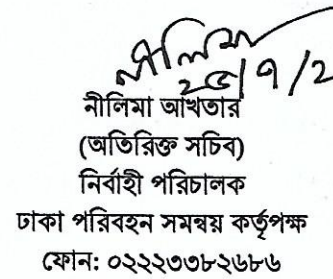 নীলিমা
২৫/৭/২
নীলিমা আখতার
(অতিরিক্ত সচিব)
নির্বাহী পরিচালক
ঢাকা পরিবহন সমন্বয় কর্তৃপক্ষ
ফোন: ০২২২৩৩৮২৬৮৬